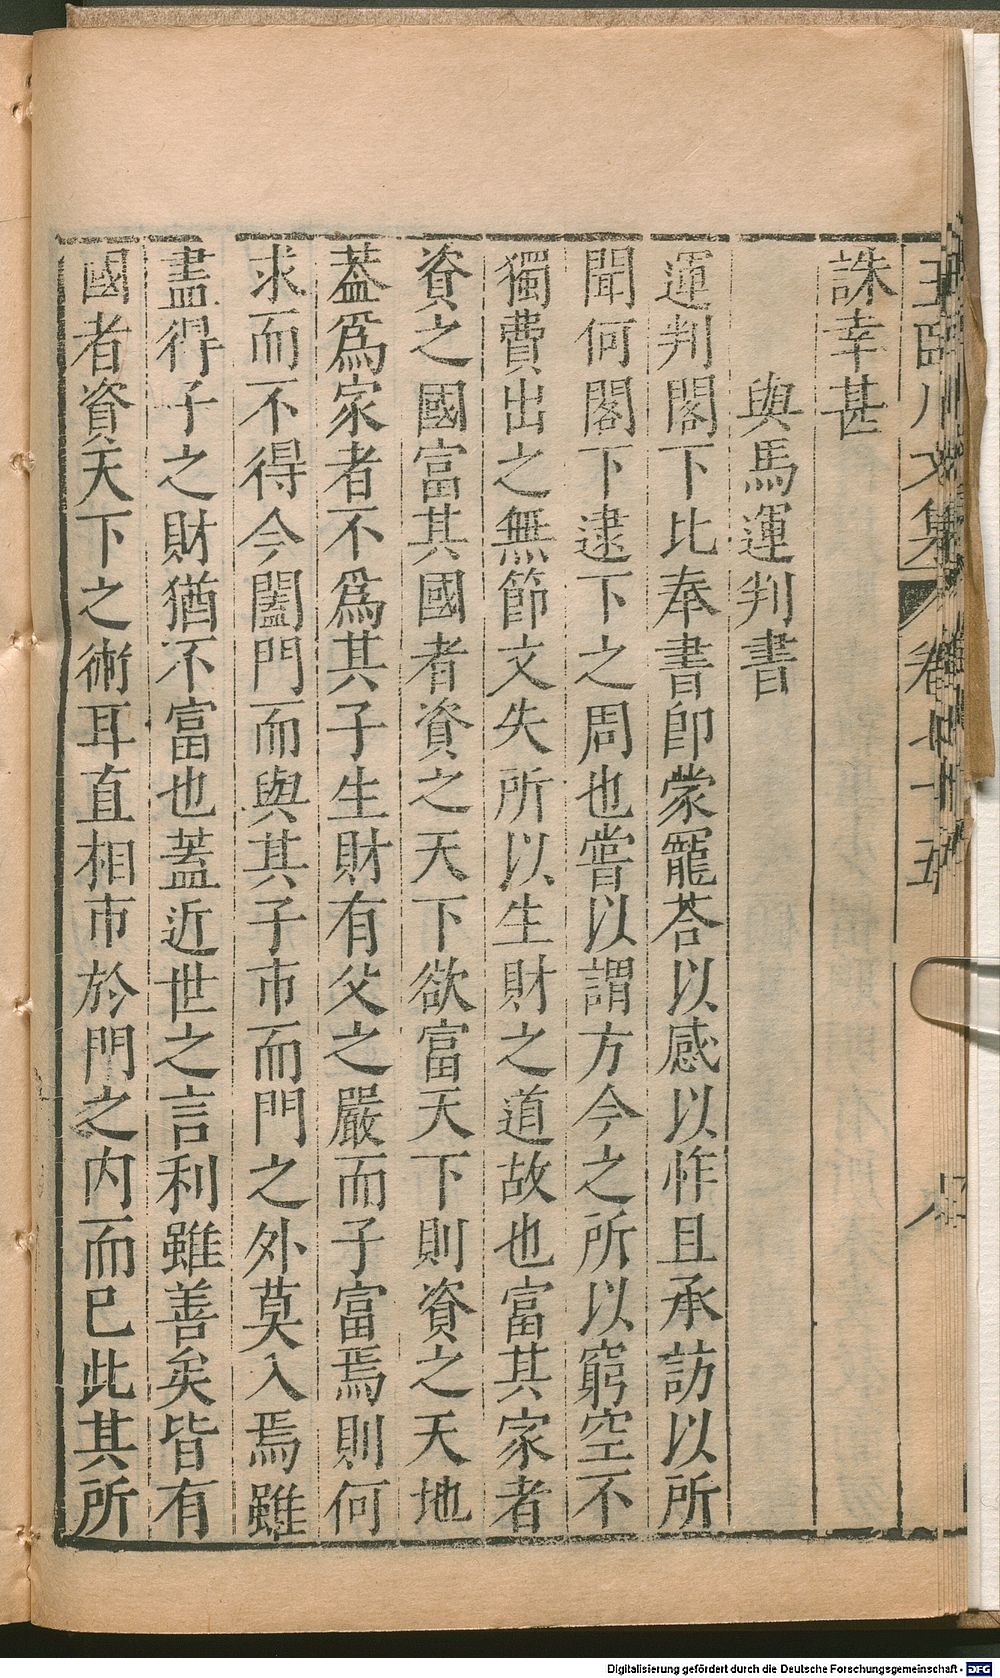 王臨川文集 卷七十五
誅幸甚
與馬運判書
運判閣下比奉書即蒙寵荅以感以怍且承訪以所
聞何閣下逮下之周也嘗以謂方今之所以窮空不
獨費出之無節又失所以生財之道故也富其家者
資之國富其國者資之天下欲富天下則資之天地
葢爲家者不爲其子生財有父之嚴而子富焉則何
求而不得今闔門而與其子市而門之外莫入焉雖
盡得子之財猶不富也蓋近世之言利雖善矣皆有
國者資天下之術耳直相市於門之内而已此其所
Digitalisierung gefördert durch die Deutsche Forschungsgemeinschaft - DFG